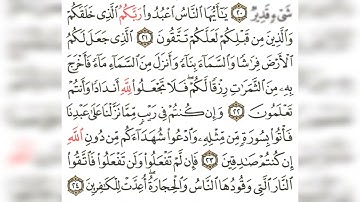 شَىْءٍ قَدِيرٌ ٢٠ يَٰٓأَيُّهَا ٱلنَّاسُ ٱعْبُدُوا۟ رَبَّكُمُ ٱلَّذِى خَلَقَكُمْ
وَٱلَّذِينَ مِن قَبْلِكُمْ لَعَلَّكُمْ تَتَّقُونَ ٢١ ٱلَّذِى جَعَلَ لَكُمُ
ٱلْأَرْضَ فِرَٰشًا وَٱلسَّمَآءَ بِنَآءً وَأَنزَلَ مِنَ ٱلسَّمَآءِ مَآءً فَأَخْرَجَ
بِهِۦ مِنَ ٱلثَّمَرَٰتِ رِزْقًا لَّكُمْ ۖ فَلَا تَجْعَلُوا۟ لِلَّهِ أَندَادًا وَأَنتُمْ
تَعْلَمُونَ ٢٢ وَإِن كُنتُمْ فِى رَيْبٍ مِّمَّا نَزَّلْنَا عَلَىٰ عَبْدِنَا
فَأْتُوا۟ بِسُورَةٍ مِّن مِّثْلِهِۦ وَٱدْعُوا۟ شُهَدَآءَكُم مِّن دُونِ ٱللَّهِ
إِن كُنتُمْ صَٰدِقِينَ ٢٣ فَإِن لَّمْ تَفْعَلُوا۟ وَلَن تَفْعَلُوا۟ فَٱتَّقُوا۟
ٱلنَّارَ ٱلَّتِى وَقُودُهَا ٱلنَّاسُ وَٱلْحِجَارَةُ ۖ أُعِدَّتْ لِلْكَٰفِرِينَ ٢٤